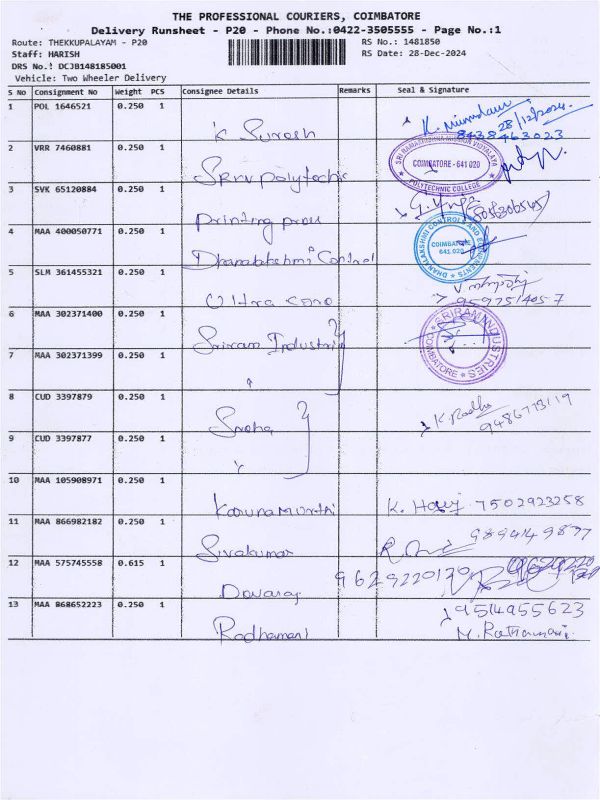 THE PROFESSIONAL COURIERS, COIMBATORE
Delivery Runsheet - P20 - Phone No.:0422-3505555 - Page No.:1
Route: THEKKUPALAYAM - P20 RS No.: 1481850
Staff: HARISH RS Date: 28-Dec-2024
DRS No.: DCJB148185001
Vehicle: Two Wheeler Delivery
S No Consignment No Weight PCS Consignee Details Remarks Seal & Signature
1 POL 1646521 0.250 1
K Suresh K. 28/12/2024
8438463023
2 VRR 7460881 0.250 1
SRKV Polytechnic SRI RAMAKRISHNA MISSION VIDYALAYA COIMBATORE - 641 020 POLYTECHNIC COLLEGE
3 SVK 65120884 0.250 1
Printing press
4 MAA 400050771 0.250 1
Dhanalakshmi Control DHANALAKSHMI CONTROLS AND EQUIPMENTS COIMBATORE 641 020
5 SLM 361455321 0.250 1
Ultra
9597514057
6 MAA 302371400 0.250 1
Sriram Industries SRIRAM INDUSTRIES COIMBATORE
7 MAA 302371399 0.250 1
"
8 CUD 3397879 0.250 1
Sneha K Radha
9 CUD 3397877 0.250 1
"
10 MAA 105908971 0.250 1
Karunamurthi K. 7502923258
11 MAA 866982182 0.250 1
Sivakumar 9894149897
12 MAA 575745558 0.615 1
Devaraj 9629220120
13 MAA 868652223 0.250 1
Radhamani 9514955623
M. Rathamani